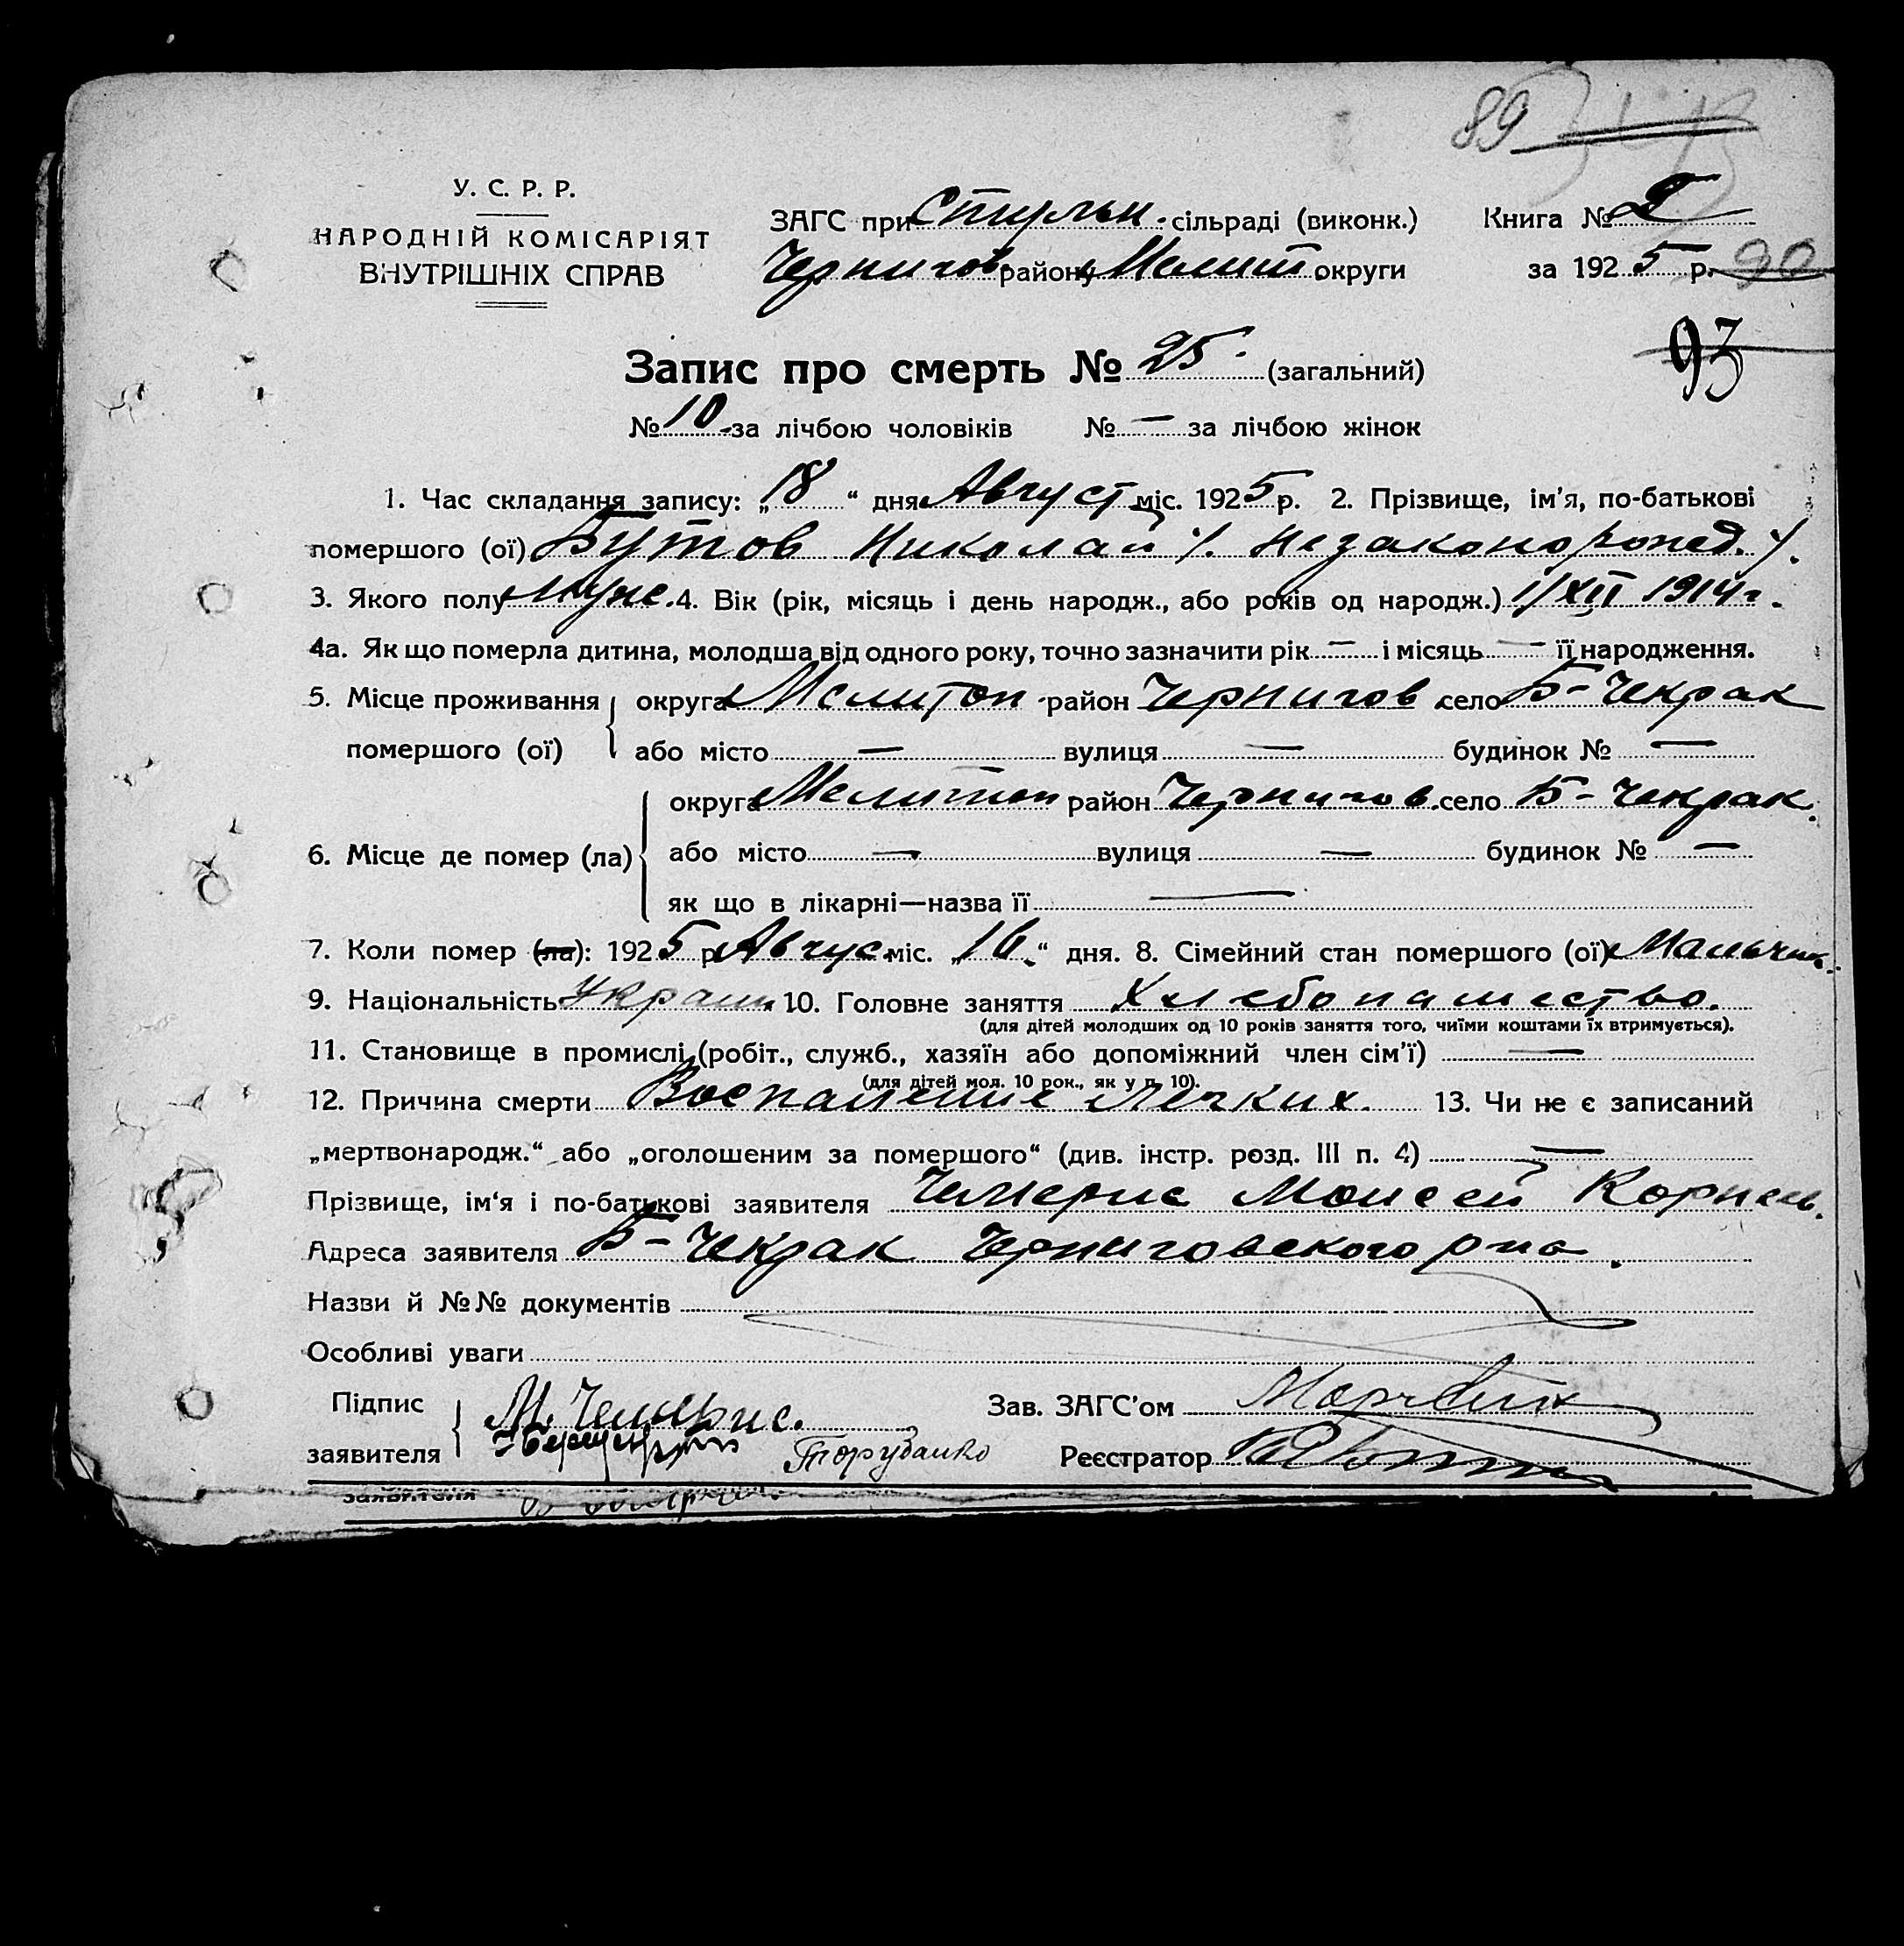 89
У. С. Р. Р.
НАРОДНІЙ КОМІСАРІЯТ
ВНУТРІШНІХ СПРАВ
ЗАГС при сільраді (виконк.) Книга №
Чернигов району Мелит округи за 1925 р. 90
93
Запис про смерть № 25 (загальний)
№ 10 за лічбою чоловіків № — за лічбою жінок
1. Час складання запису: „18“ дня Август міс. 1925 р. 2. Прізвище, ім'я, по-батькові
помершого (ої) Бутов Николай /. Незаконорожед. /.
3. Якого полу Муж. 4. Вік (рік, місяць і день народж., або років од народж.) 1/XII 1914 г.
4а. Як що померла дитина, молодша від одного року, точно зазначити рік — і місяць — її народження.
5. Місце проживання округа Мелитоп район Чернигов село Б-Чекрак
помершого (ої) або місто — вулиця — будинок № —
округа Мелитоп район Чернигов. село Б-Чекрак.
6. Місце де помер (ла) або місто — вулиця — будинок № —
як що в лікарні—назва її —
7. Коли помер (ла): 1925 р. Авгус. міс. „16.“ дня. 8. Сімейний стан помершого (ої) Мальчик.
9. Національність Украин. 10. Головне заняття Хлебопашество.
(для дітей молодших од 10 років заняття того, чиїми коштами їх втримується).
11. Становище в промислі (робіт., служб., хазяїн або допоміжний член сім'ї) —
(для дітей мол. 10 рок., як у п. 10).
12. Причина смерти Воспаление Легких. 13. Чи не є записаний
„мертвонародж.“ або „оголошеним за помершого“ (див. інстр. розд. III п. 4) —
Прізвище, ім'я і по-батькові заявителя Чемерис Моисей Корнеев.
Адреса заявителя Б-Чекрак Черниговского р-на.
Назви й №№ документів
Особливі уваги
Підпис М. Чемерис. Зав. ЗАГС'ом
заявителя Торубанко Реєстратор
заявителя